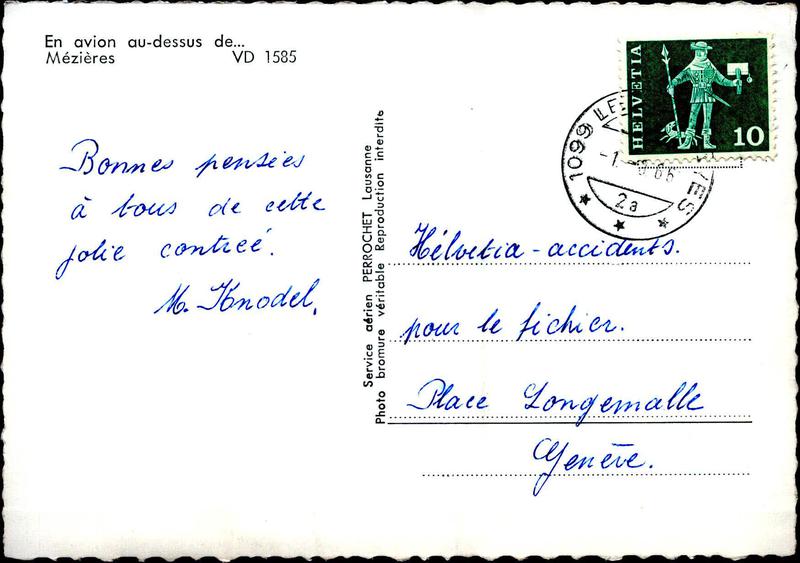 En avion au-dessus de...
Mézières VD 1585
Bonnes pensées
à tous de cette
jolie contrée.
M. Knodel.
Service aérien PERROCHET Lausanne
Photo bromure véritable Reproduction interdite
HELVETIA
10
1099
66
2a
Hélvetia-accidents.
pour le fichier.
Place Longemalle
Genève.